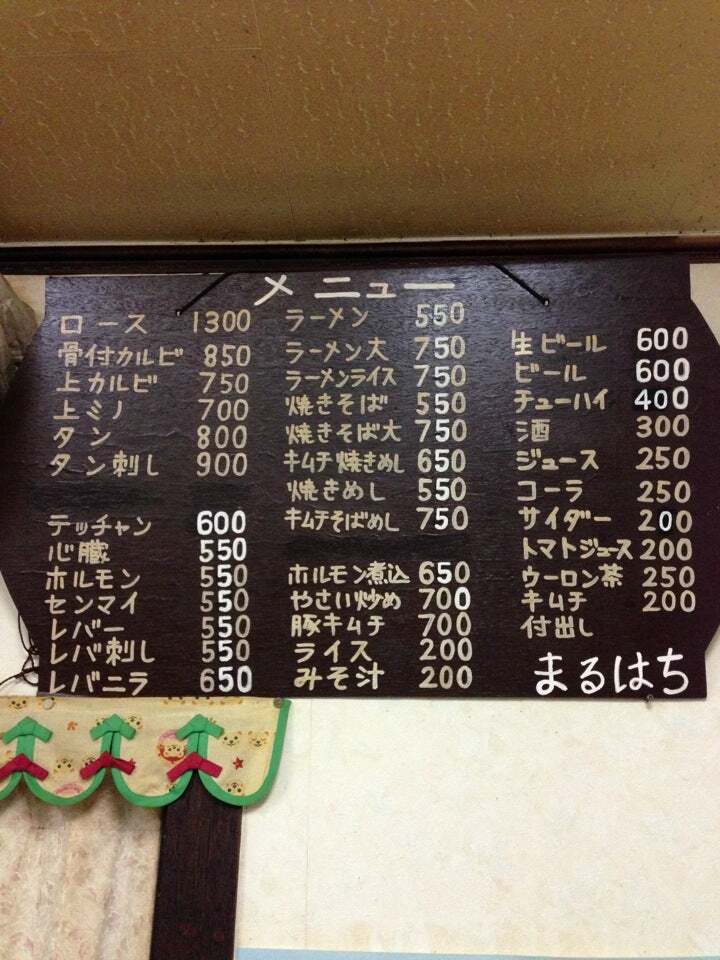 メニュー
ロース 1300
骨付カルビ 850
上カルビ 750
上ミノ 700
タン 800
タン刺し 900
テッチャン 600
心臓 550
ホルモン 550
センマイ 550
レバー 550
レバ刺し 550
レバニラ 650
ラーメン 550
ラーメン大 750
ラーメンライス 750
焼きそば 550
焼きそば大 750
キムチ焼きめし 650
焼きめし 550
キムチそばめし 750
ホルモン煮込 650
やさい炒め 700
豚キムチ 700
ライス 200
みそ汁 200
生ビール 600
ビール 600
チューハイ 400
酒 300
ジュース 250
コーラ 250
サイダー 200
トマトジュース 200
ウーロン茶 250
キムチ 200
付出し
まるはち